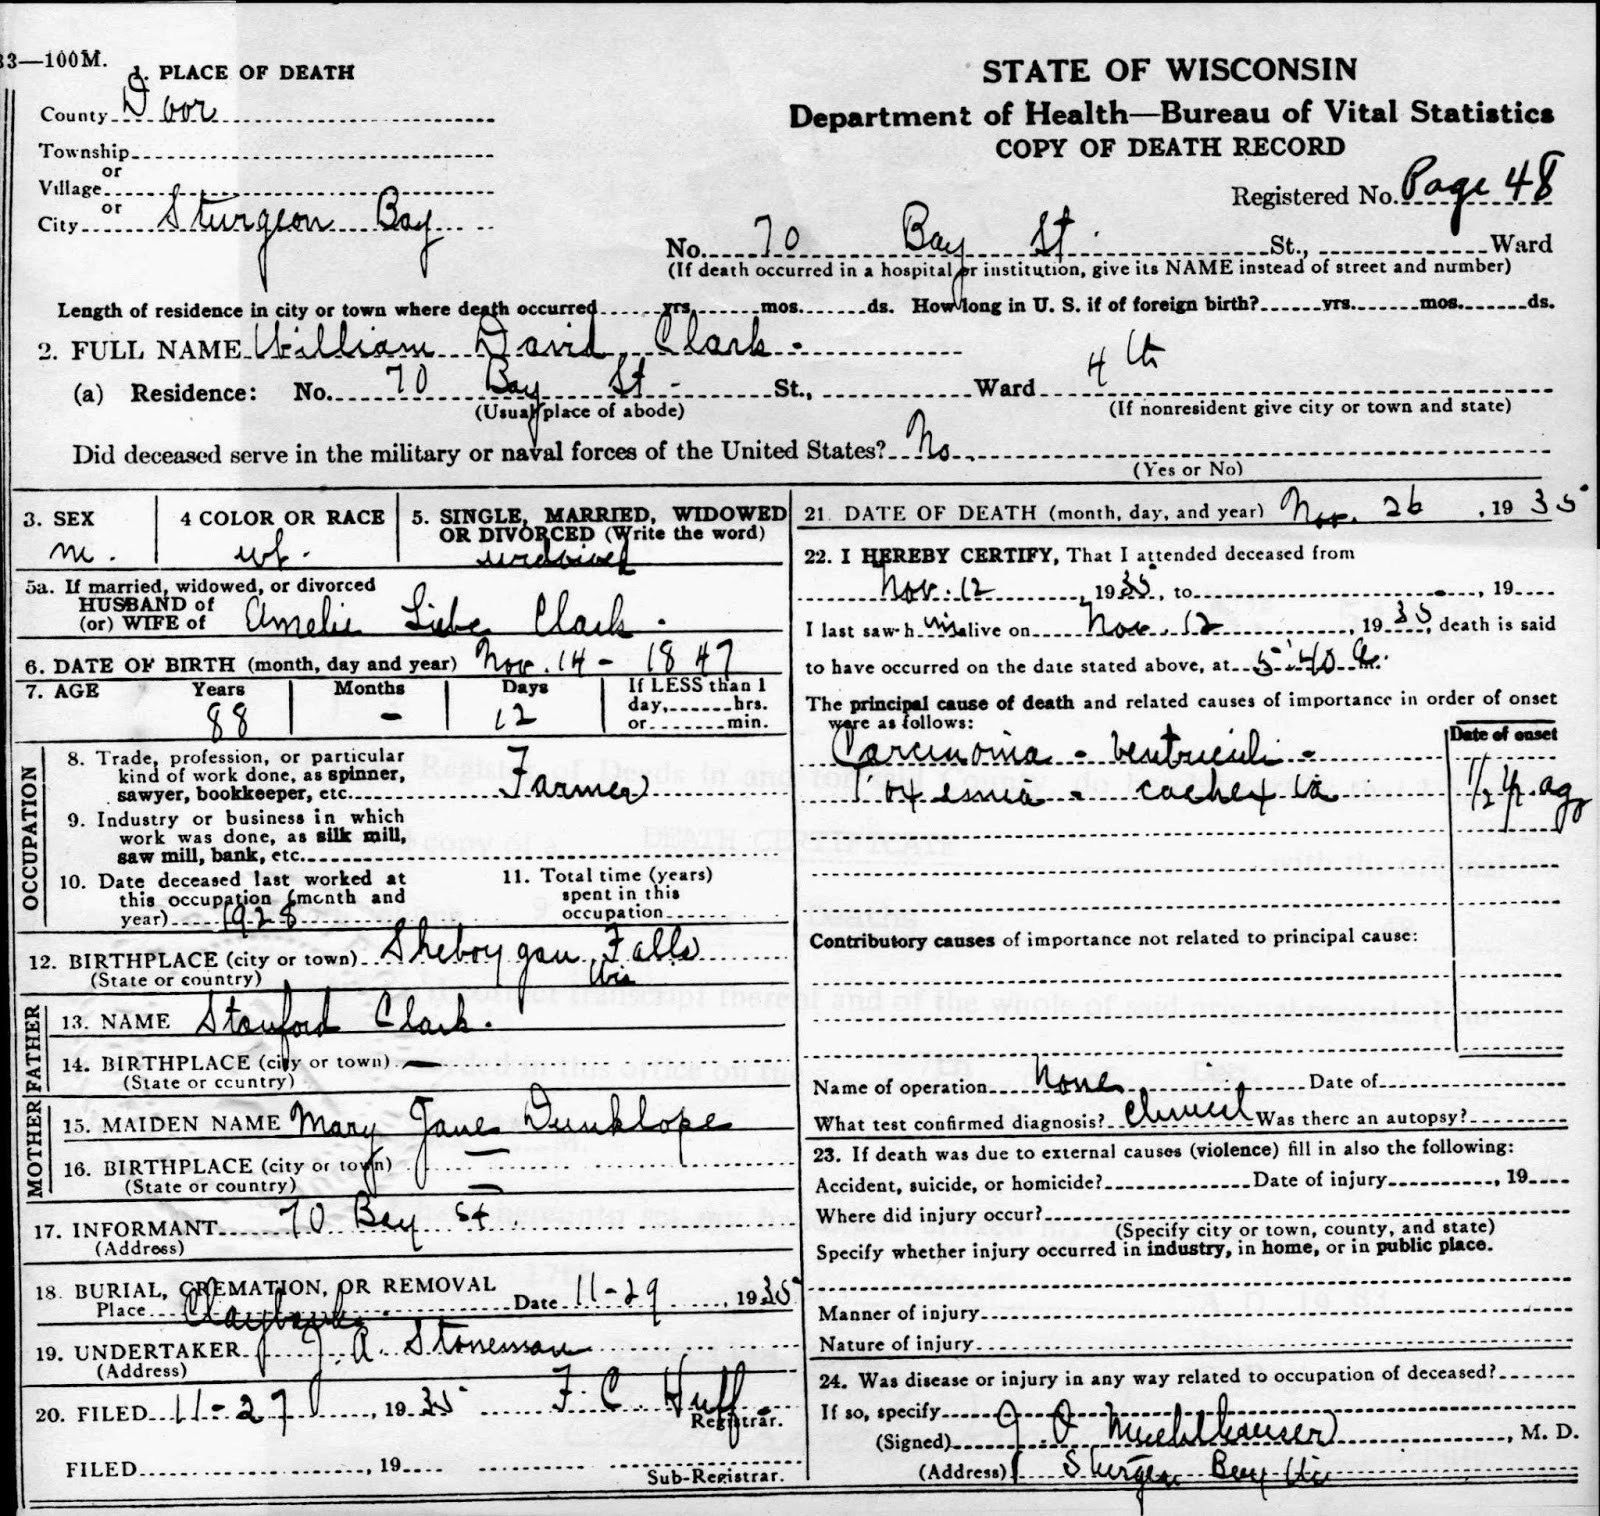 33—100M.
1. PLACE OF DEATH
County Door
Township
or
Village
or
City Sturgeon Bay
STATE OF WISCONSIN
Department of Health—Bureau of Vital Statistics
COPY OF DEATH RECORD
Registered No. Page 48
No. 70 Bay St. St., Ward
(If death occurred in a hospital or institution, give its NAME instead of street and number)
Length of residence in city or town where death occurred yrs. mos. ds. How long in U. S. if of foreign birth? yrs. mos. ds.
2. FULL NAME William David Clark
(a) Residence: No. 70 Bay St - St., Ward 4th
(Usual place of abode) (If nonresident give city or town and state)
Did deceased serve in the military or naval forces of the United States? No
(Yes or No)
3. SEX
m.
4 COLOR OR RACE
wh.
5. SINGLE, MARRIED, WIDOWED
OR DIVORCED (Write the word)
widowed
5a. If married, widowed, or divorced
HUSBAND of
(or) WIFE of Amelie Liebe Clark.
6. DATE OF BIRTH (month, day and year) Nov. 14 - 1847
7. AGE Years Months Days If LESS than 1
day, hrs.
or min.
88 - 12
OCCUPATION
8. Trade, profession, or particular
kind of work done, as spinner,
sawyer, bookkeeper, etc. Farmer
9. Industry or business in which
work was done, as silk mill,
saw mill, bank, etc.
10. Date deceased last worked at
this occupation (month and
year) 1928
11. Total time (years)
spent in this
occupation
12. BIRTHPLACE (city or town) Sheboygan Falls
(State or country) Wis
FATHER
13. NAME Stanford Clark.
14. BIRTHPLACE (city or town) —
(State or country)
MOTHER
15. MAIDEN NAME Mary Jane Dunklope
16. BIRTHPLACE (city or town) —
(State or country) —
17. INFORMANT 70 Bay St
(Address)
18. BURIAL, CREMATION, OR REMOVAL
Place Claybanks Date 11-29, 1935
19. UNDERTAKER J. A. Stoneman
(Address)
20. FILED 11-27, 1935 F C Huff
Registrar.
FILED , 19
Sub-Registrar.
21. DATE OF DEATH (month, day, and year) Nov. 26, 1935
22. I HEREBY CERTIFY, That I attended deceased from
Nov. 12, 1935, to , 19
I last saw h im alive on Nov. 12, 1935, death is said
to have occurred on the date stated above, at 5:40 a.
The principal cause of death and related causes of importance in order of onset
were as follows:
Date of onset
Carcinoma - ventriculi -
Toxemia - cachexia
1/2 yr. ago
Contributory causes of importance not related to principal cause:
Name of operation None Date of
What test confirmed diagnosis? Clinical Was there an autopsy?
23. If death was due to external causes (violence) fill in also the following:
Accident, suicide, or homicide? Date of injury , 19
Where did injury occur?
(Specify city or town, county, and state)
Specify whether injury occurred in industry, in home, or in public place.
Manner of injury
Nature of injury
24. Was disease or injury in any way related to occupation of deceased?
If so, specify
(Signed) J O Muehlhauser, M. D.
(Address) Sturgeon Bay Wis